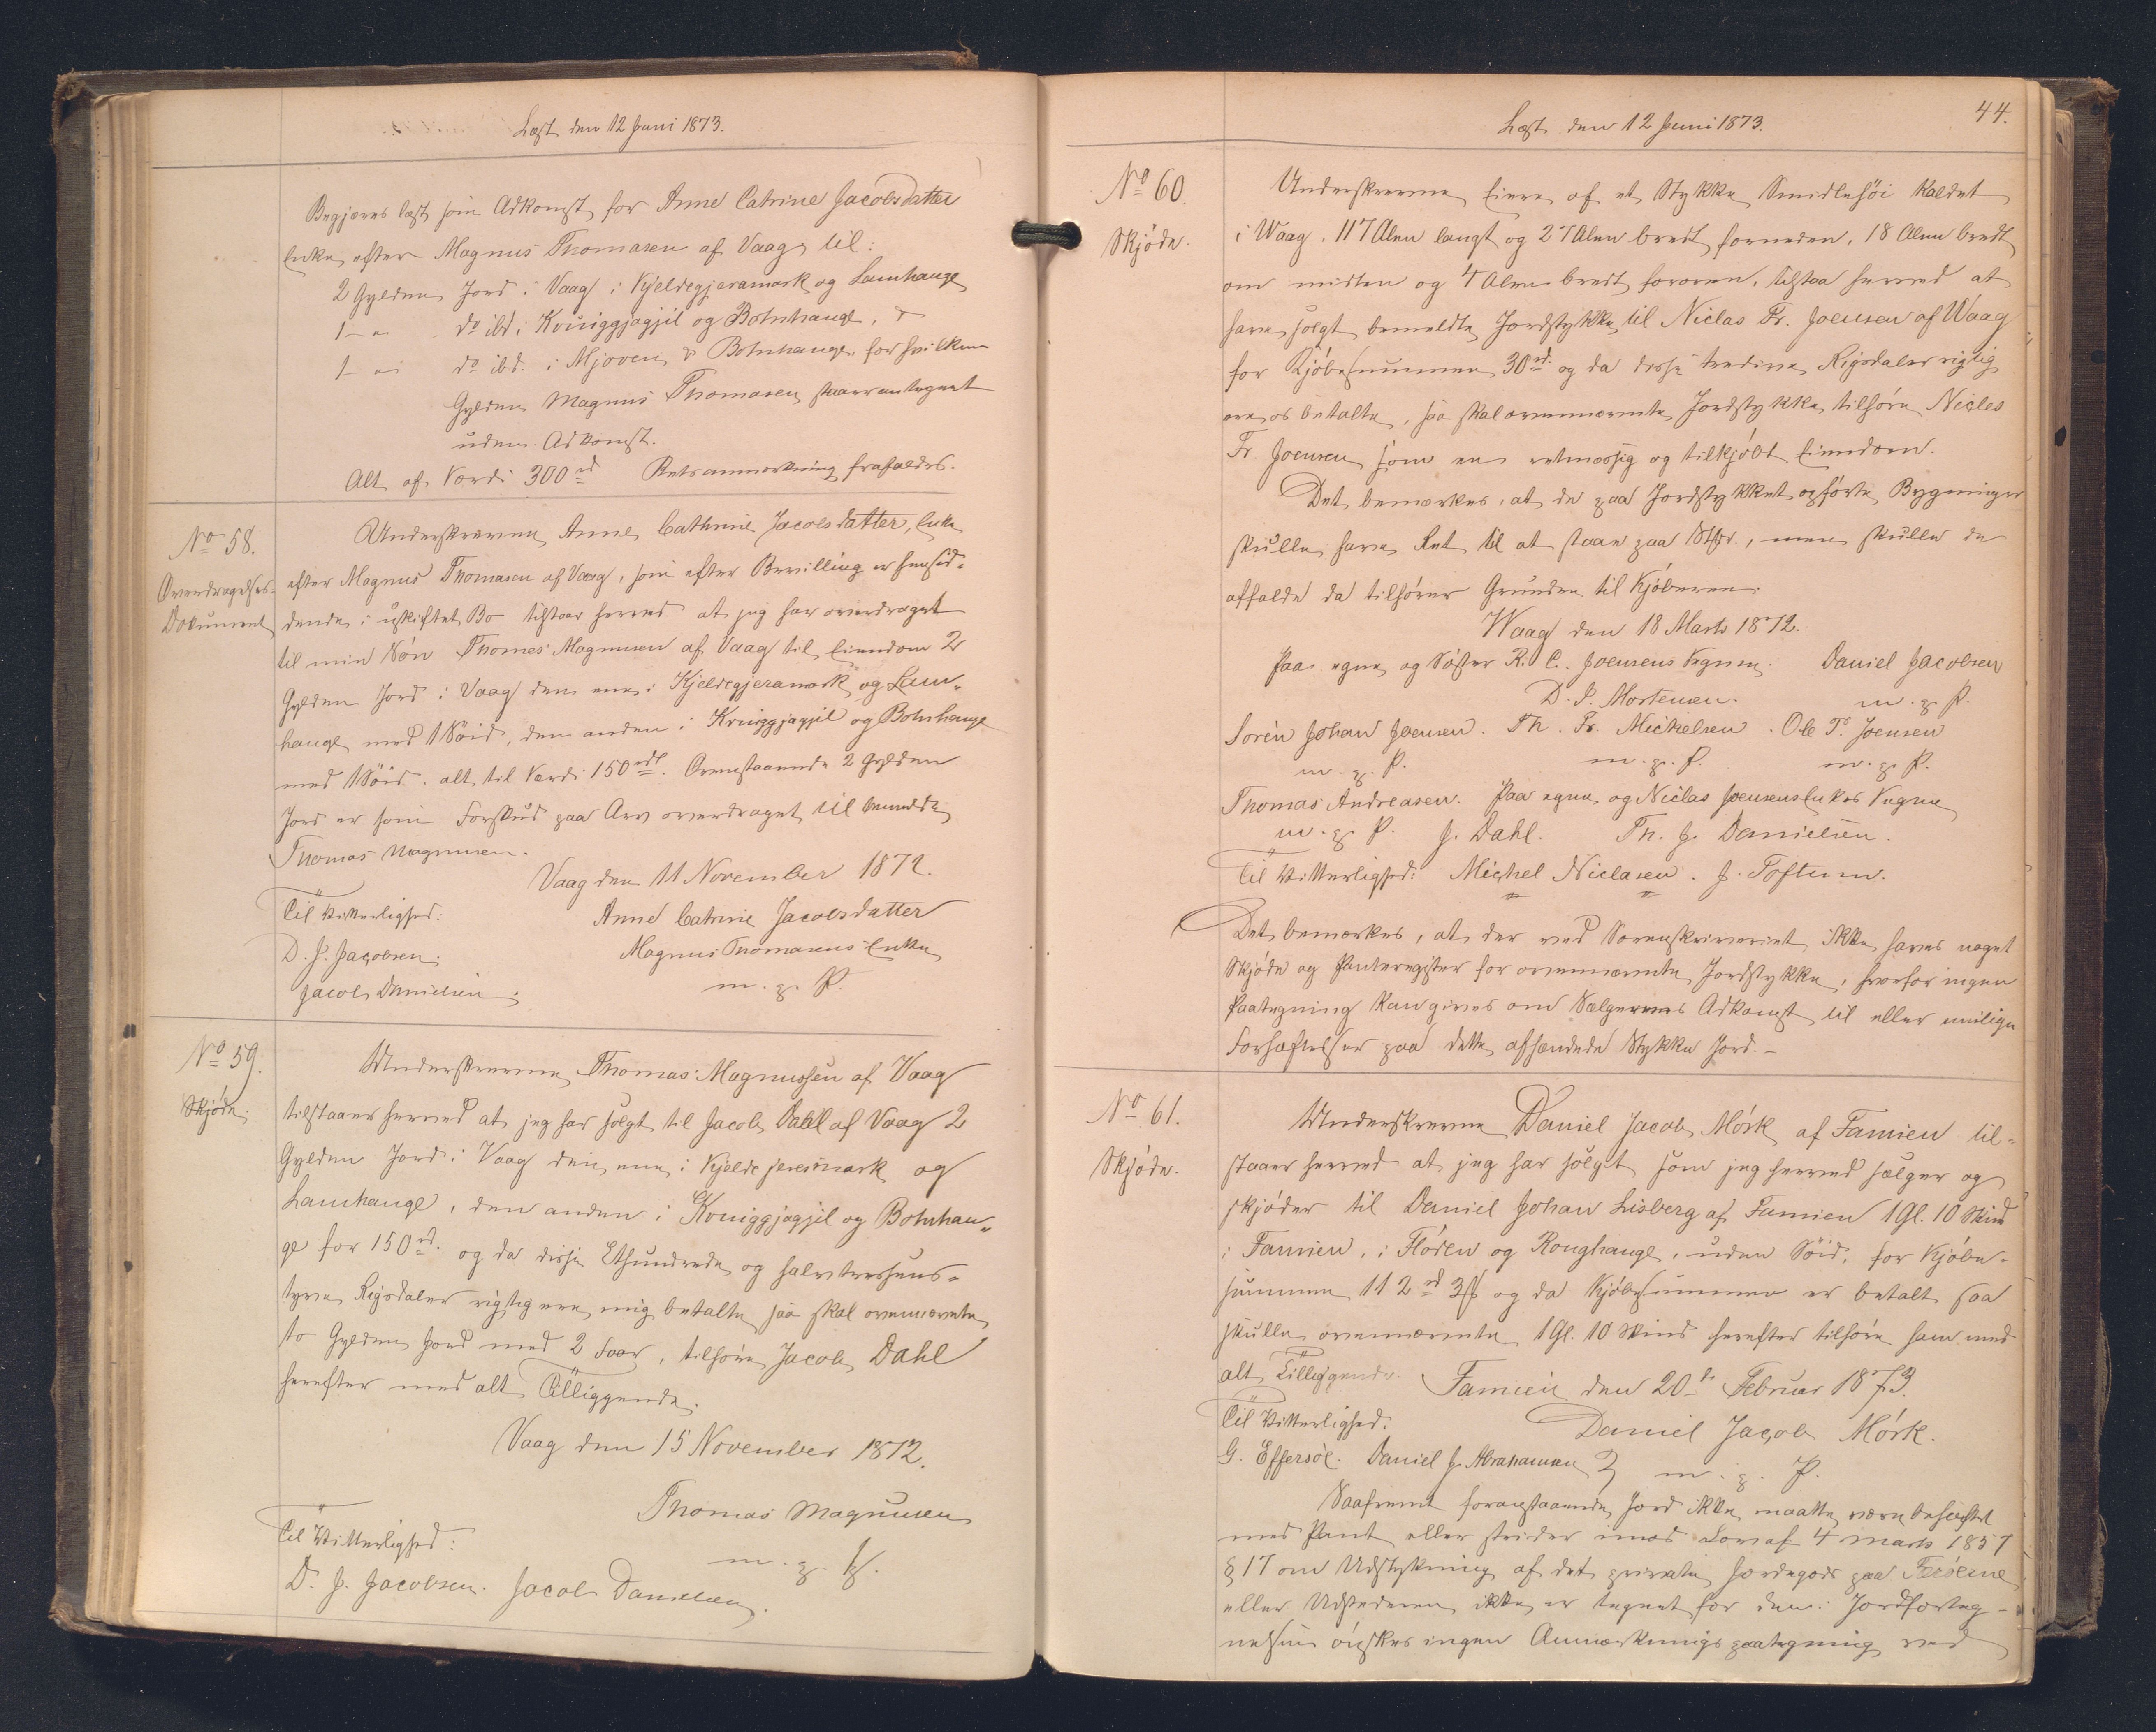 Læst den 12 Juni 1873.
Begjæres læst som Adkomst for Anne Catrine Jacobsdatter
Enke efter Magnus Thomasen af Vaag til:
2 Gylden Jord i Vaag i Kjeldegjeramark og Lamhauge
1 — " do ibd. i Kruiggjagjil og Botnhauge, &
1 — " do ibd. i Mjoven & Botnhauge, for hvilken
Gylden Magnus Thomasen staar antegnet
uden Adkomst.
Alt af Værdi 300 rd Retsanmærkning frafaldes.
No 58.
Overdragelses-
Dokument
Underskrevne Anne Cathrine Jacobsdatter, Enke
efter Magnus Thomasen af Vaag, som efter Bevilling er hensid-
dende i uskiftet Bo tilstaar herved at jeg har overdraget
til min Søn Thomas Magnusen af Vaag til Eiendom 2
Gylden Jord i Vaag den ene i Kjeldegjeramark og Lam-
hauge med 1 Söid, den anden i Kruiggjagjil og Botnhauge
med 1 Söid. alt til Værdi 150 rdl. Ovenstaaende 2 Gylden
Jord er som Forskud paa Arv overdraget til bemeldte
Thomas Magnusen.
Vaag den 11 November 1872.
Til Vitterlighed:
Anne Catrine Jacobsdatter
D. J. Jacobsen.
Magnus Thomasens Enke
Jacob Danielsen.
m. p. P.
No 59.
Skjöde.
Underskrevne Thomas Magnussen af Vaag
tilstaaer herved at jeg har solgt til Jacob Dahl af Vaag 2
Gylden Jord i Vaag den ene i Kjeldejeresmark og
Lamhauge, den anden i Kruiggjagjil og Botnhau-
ge for 150 rd. og da disse Ethundrede og halvtresinds-
tyve Rigsdaler rigtig ere mig betalte saa skal ovennævnte
to Gylden Jord med 2 Faar, tilhøre Jacob Dahl
herefter med alt Tilliggende.
Vaag den 15 November 1872.
Thomas Magnusen
Til Vitterlighed:
m. p. P.
D. J. Jacobsen. Jacob Danielsen.
44.
Læst den 12 Juni 1873.
No 60.
Skjöde.
Underskrevne Eiere af et Stykke Smidlehöi kaldet
i Waag, 117 Alen langt og 27 Alen bredt forneden, 18 Alen bredt
om midten og 4 Alen bredt foroven, tilstaa herved at
have solgt bemeldte Jordstykke til Niclas Fr. Joensen af Waag
for Kjöbesummen 30 rd. og da disse tredive Rigsdaler rigtig
ere os betalte, saa skal ovennævnte Jordstykke tilhøre Niclas
Fr. Joensen som en retmæssig og tilkjöbt Eiendom.
Det bemærkes, at de paa Jordstykket opförte Bygninger
skulle have Ret til at staae paa Stedr., men skulle de
affalde da tilhörer Grunden til Kjöberen.
Waag den 18 Marts 1872.
Paa egne og Søster R. C. Joensens Vegne. Daniel Jacobsen
D. P. Mortensen. m. p. P.
Sorèn Johan Joensen. Th. Fr. Mickelsen. Ole Ts. Joensen
m. p. P. m. p. P. m. p. P.
Thomas Andreasen. Paa egne og Niclas Joensens Enkes Vegne
m. p. P. J. Dahl. Th. J. Danielsen.
Til Vitterlighed: Michel Niclasen. J. Toftum.
Det bemærkes, at der ved Sorenskriveriet ikke haves noget
Skjöde og Panteregister for ovennævnte Jordstykke, hvorfor ingen
Paategning kan gives om Sælgerens Adkomst til eller mulige
Forhæftelser paa dette afhændede Stykke Jord. —
No 61.
Skjöde.
Underskrevne Daniel Jacob Mörk af Famien til-
staaer herved at jeg har solgt som jeg herved sælger og
skjöder til Daniel Johan Lisberg af Famien 1 Gl. 10 Skind
i Famien, i Flöden og Roughauge, uden Söid, for Kjöbe-
summen 112 rd 3 ß og da Kjöbesummen er betalt saa
skulle ovennævnte 1 Gl. 10 Skind herefter tilhöre ham med
alt Tilliggende.
Famien den 20de Februar 1873.
Til Vitterlighed.
Daniel Jacob Mörk.
G. Effersöe. Daniel J. Abrahamsen
m. p. P.
Saafremt foranstaaende Jord ikke maatte være behæftet
med Pant eller strider imod Lov af 4 Marts 1857
§ 17 om Udstykning af det private Jordegods paa Færöerne
eller Udstederen ikke er tegnet for den i Jordforteg-
nelsen önskes ingen Anmærknings paategning ved